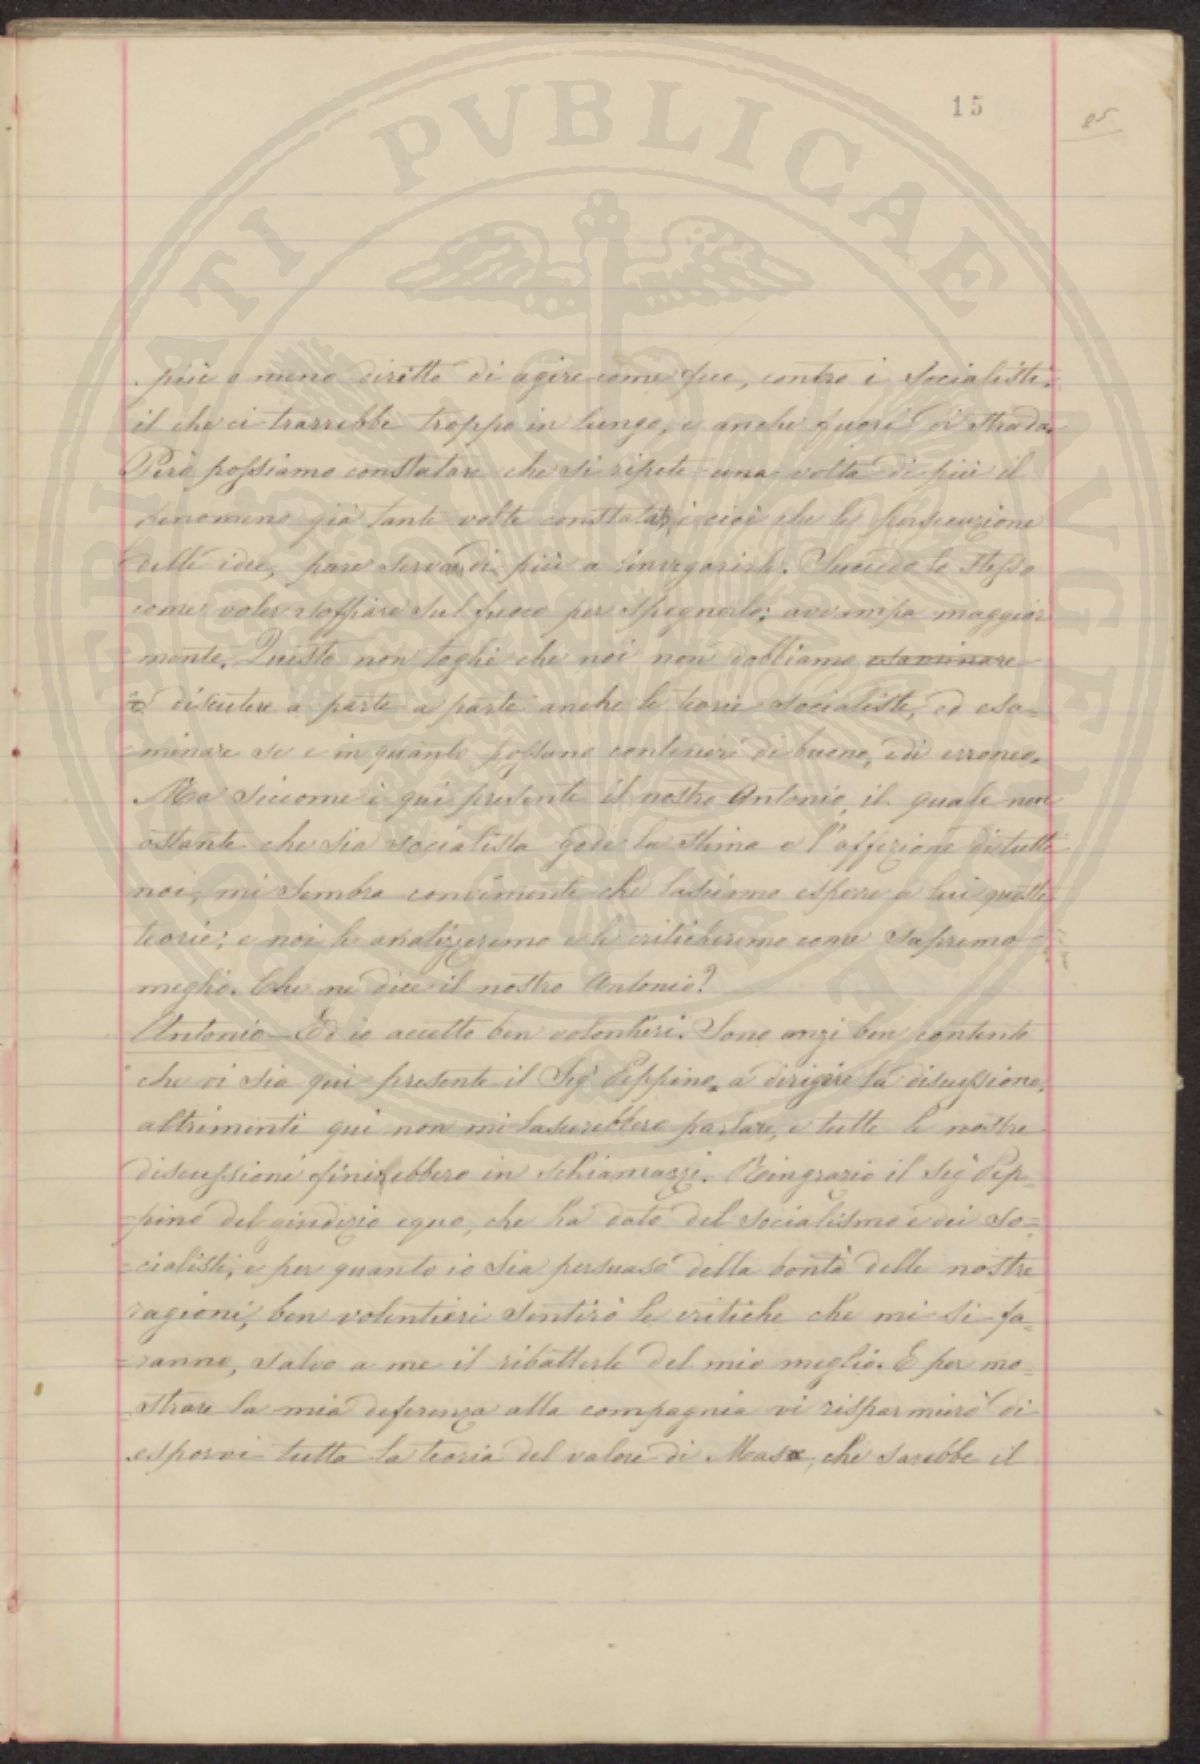 15
85
più o meno diritto di agire come fece, contro i socialisti:
il che ci trarrebbe troppo in lungo, e anche fuori di strada.
Però possiamo constatare che si ripete una volta di più il
fenomeno già tante volte constatato, cioè che la persecuzione
delle idee, pare serva di più a invigorirle. Succede lo stesso
come voler soffiare sul fuoco per spegnerlo: avvampa maggior
mente. Questo non toglie che noi non dobbiamo esaminare
e discutere a parte a parte anche le teorie socialiste, ed esa=
=minare se e in quanto possano contenere di buono, e di erroneo.
Ma siccome è qui presente il nostro Antonio, il quale non
ostante che sia socialista gode la stima e l'affezione di tutti
noi, mi sembra conveniente che lasciamo esporre a lui queste
teorie; e noi le analizzeremo e le criticheremo come sapremo
meglio. Che ne dice il nostro Antonio?
Antonio - Ed io accetto ben volontieri. Sono anzi ben contento
che vi sia qui presente il Sigr Peppino, a dirigere la discussione,
altrimenti qui non mi lascerebbero parlare, e tutte le nostre
discussioni finirebbero in schiamazzi. Ringrazio il Sigr Pep=
=pino del giudizio equo, che ha dato del socialismo e dei so=
=cialisti, e per quanto io sia persuaso della bontà delle nostre
ragioni, ben volentieri sentirò le critiche che mi si fa=
=ranno, salvo a me il ribatterle del mio meglio. E per mo=
=strare la mia deferenza alla compagnia vi risparmierò di
esporvi tutta la teoria del valore di Marx, che sarebbe il
PVBLICAE